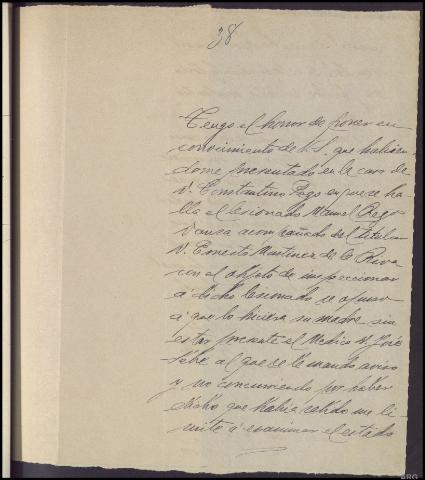 38
Tengo el honor de poner en
conocimiento de V.S. que habien-
dome presentado en la casa de
D. Constantino Pazo en que se ha-
lla el lesionado Manuel Rego
acompañado del titular
D. Ernesto Martinez de la Riva
con el objeto de inspeccionar
á dicho lesionado se opuso
á que lo hiciera su madre sin
estar presente el Medico D. José
al que se le mando aviso
y no concurriendo por haber
dicho que habia salido me li-
mité á examinar el estado
ARG